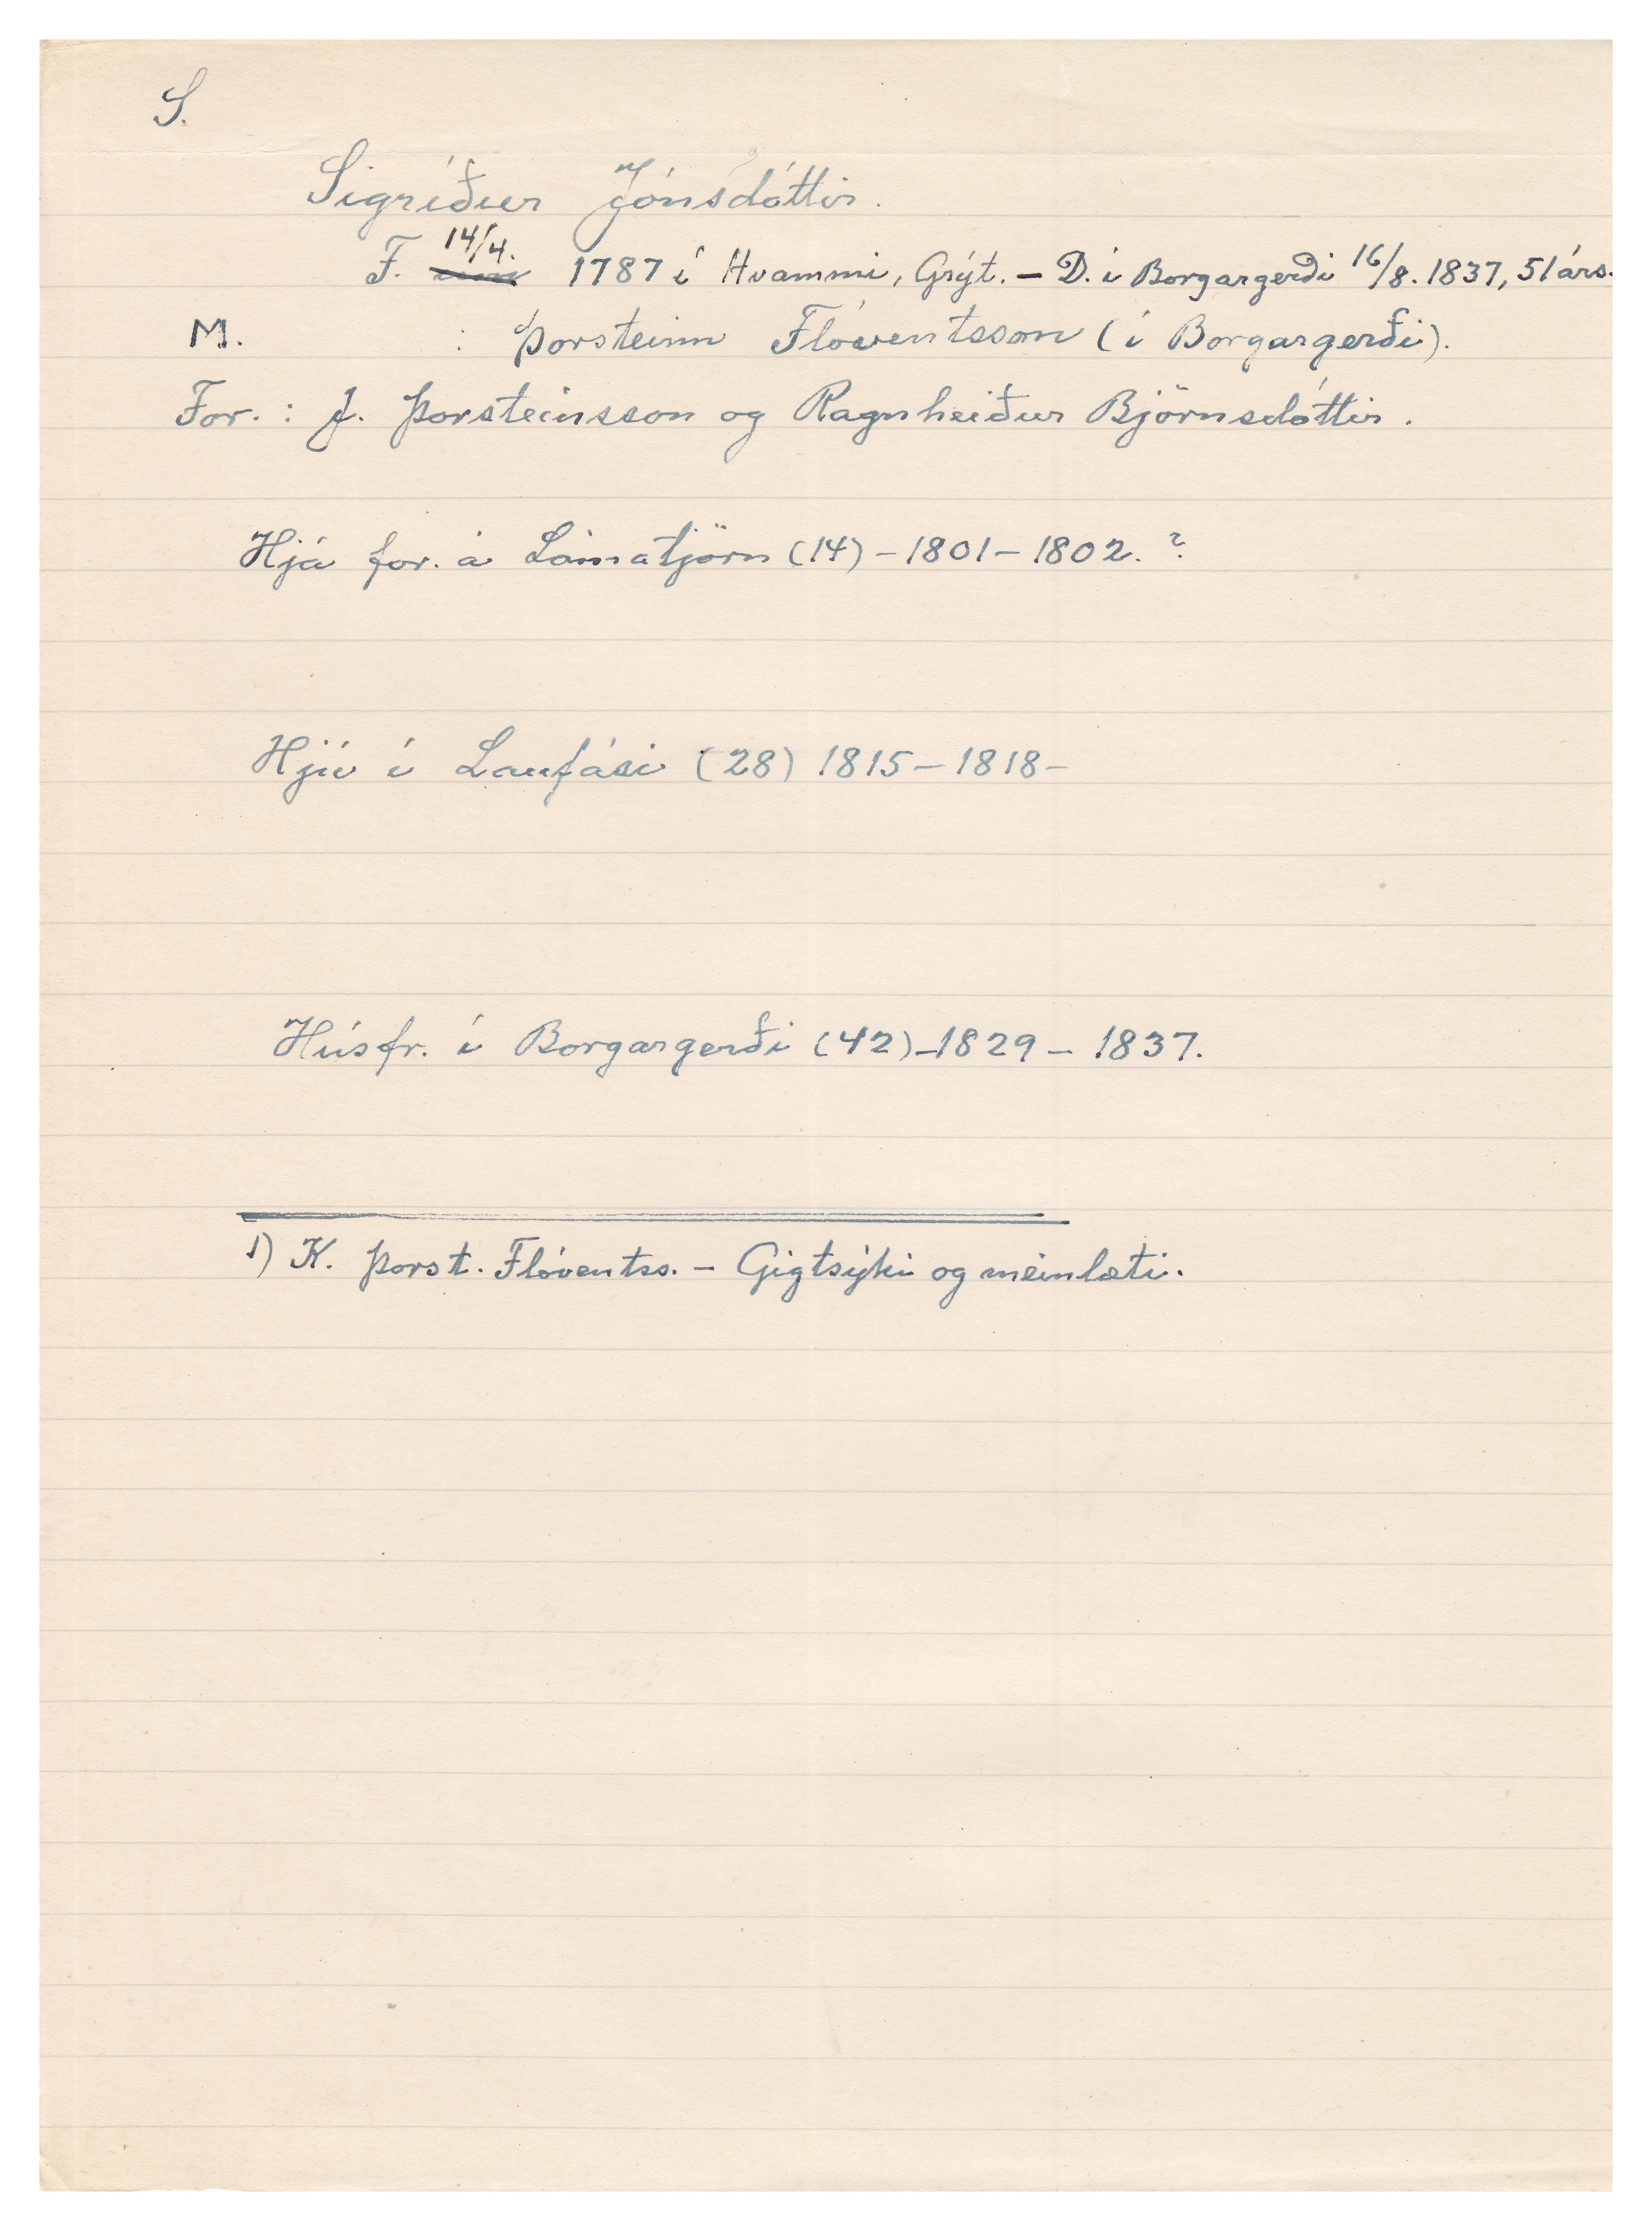 S.
Sigríður Jónsdóttir.
F. 14/4. 1787 í Hvammi, Grýt. – D. í Borgargerði 16/8. 1837, 51 árs.
M. : Þorsteinn Flóventsson (í Borgargerði).
For. : J. Þorsteinsson og Ragnheiður Björnsdóttir.
Hjá for. á Lómatjörn (14) – 1801 – 1802. ?
Hjú í Laufási (28) 1815 – 1818 –
Húsfr. í Borgargerði (42) – 1829 – 1837.
1) K. Þorst. Flóventss. – Gigtsýki og meinlæti.